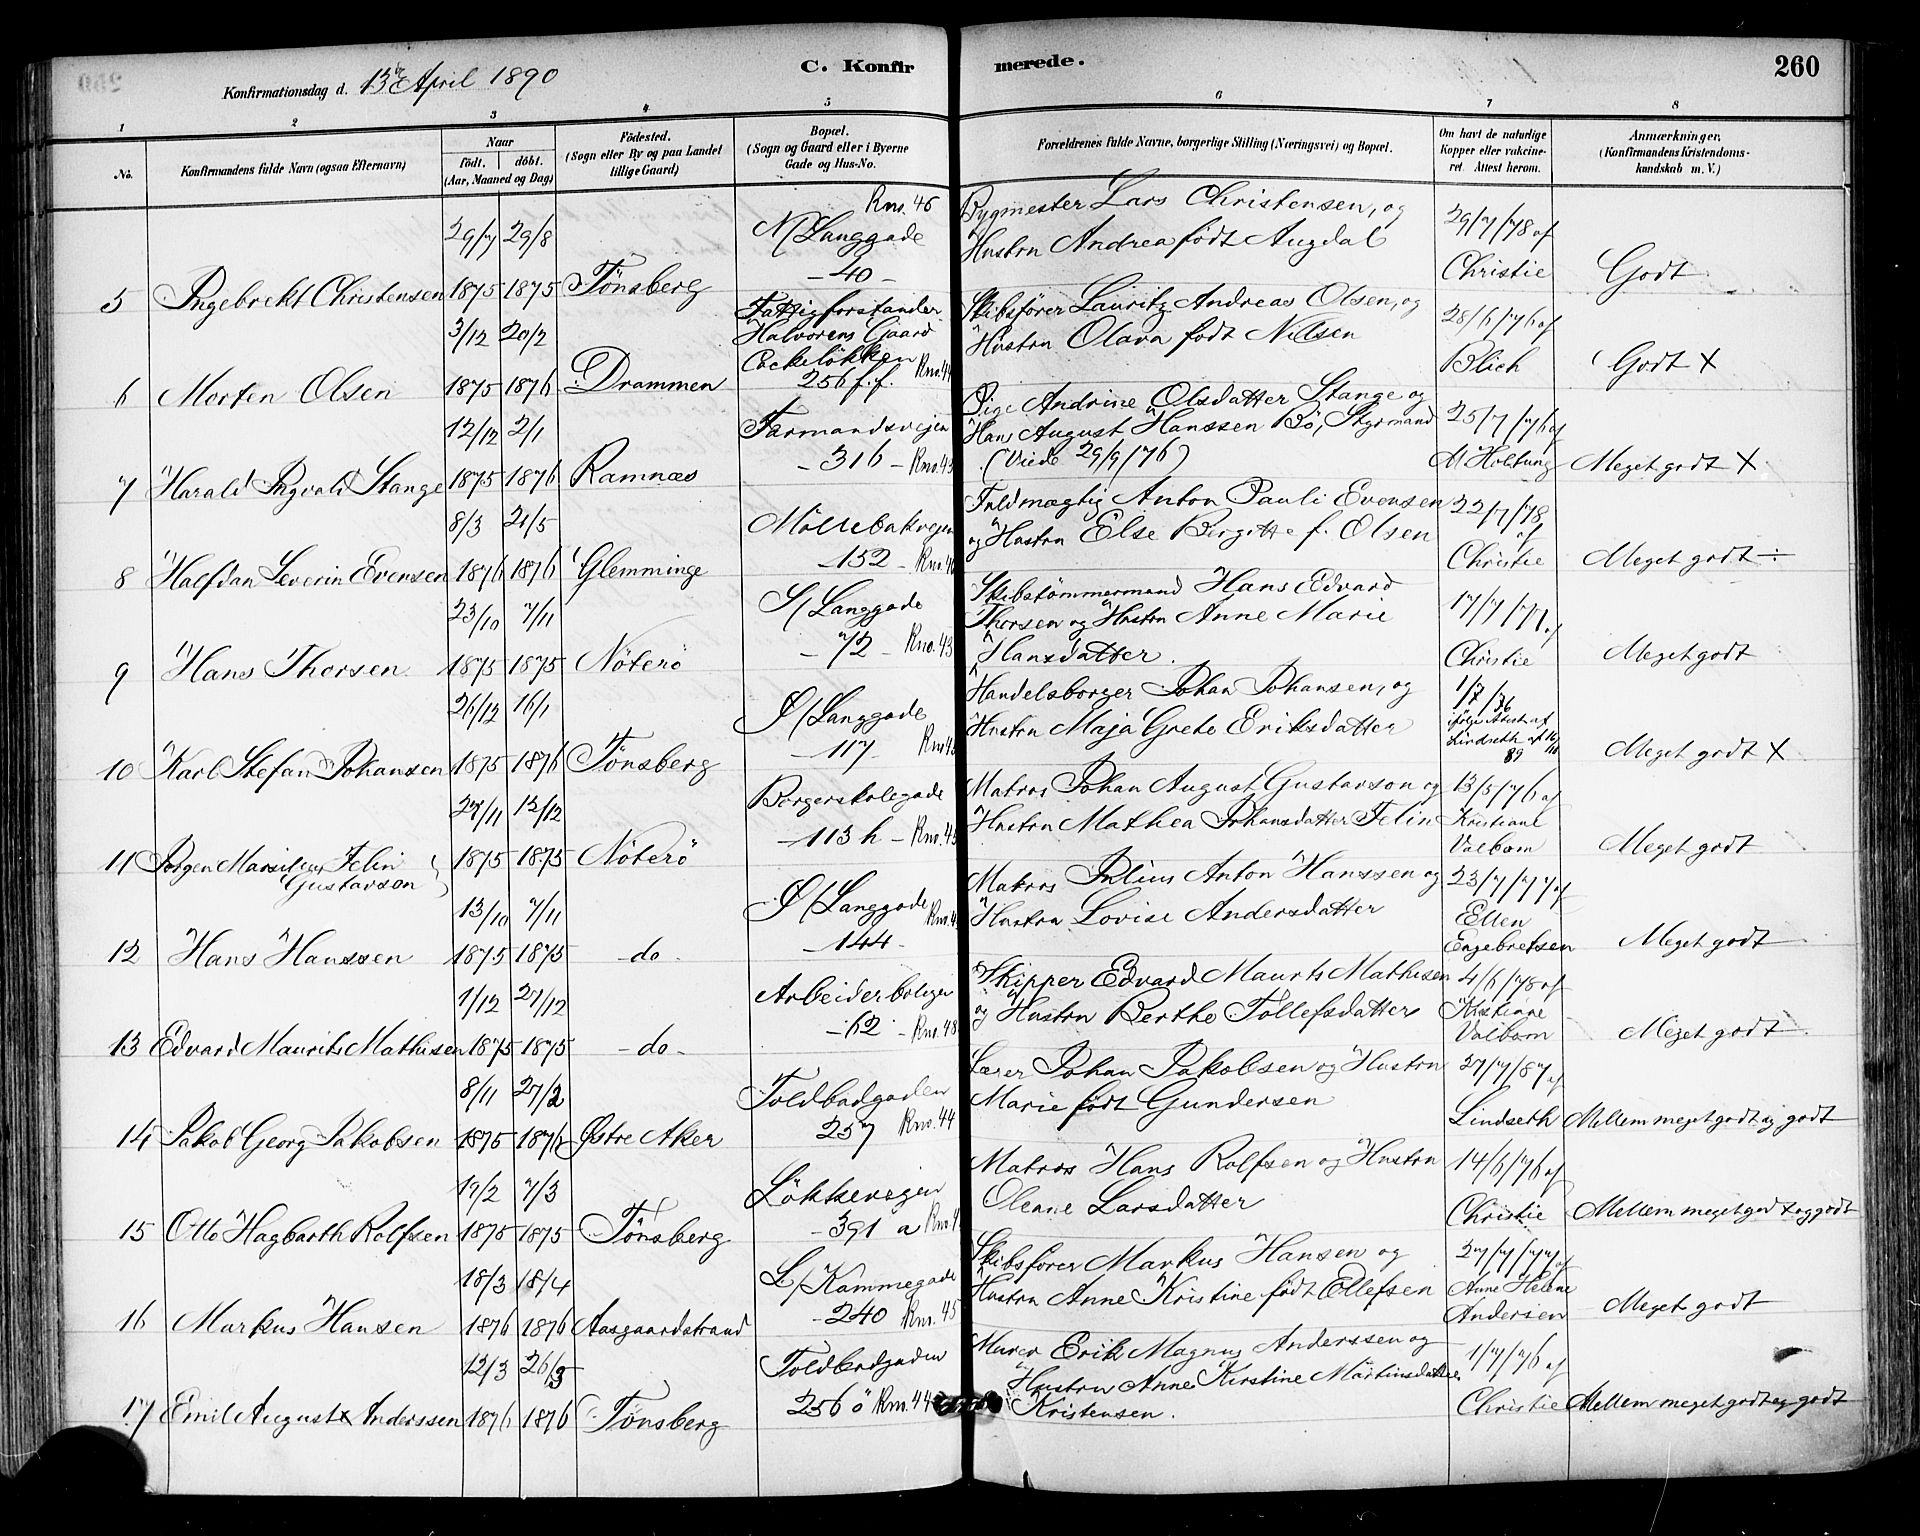 C. Konfirmerede.
260
Konfirmationsdag d. 13de April 1890
1 2 3 4 5 6 7 8
No.
Konfirmandens fulde Navn (ogsaa Efternavn)
Naar
födt. döbt.
(Aar, Maaned og Dag)
Födested.
(Sogn eller By og paa Landet
tillige Gaard)
Bopæl.
(Sogn og Gaard eller i Byerne
Gade og Hus-No.
Forældrenes fulde Navne, borgerlige Stilling (Næringsvei) og Bopæl.
Om havt de naturlige
Kopper eller vakcine-
ret. Attest herom.
Anmærkninger,
(Konfirmandens Kristendoms-
kundskab m. V.)
5 Ingebrekt Christensen
29/7 1875
29/8 1875
Tønsberg
Rno. 46
N/Langgade
- 40 -
Bygmester Lars Christensen, og
Hustru Andrea født Augdal
29/7/78 af
Christie
Godt
6 Morten Olsen
3/12 1875
20/2 1876
Drammen
Fattigforstander
Halvorsens Gaard
256 f.f. Rno. 44
Skibsfører Lauritz Andreas Olsen, og
Hustru Olava født Nilsen
28/6/76 af
Blich
Godt X
7 Harald Ingvald Stange
12/12 1875
2/1 1876
Ramnæs
Farmandsvejen
- 316 - Rno. 43
Pige Andrine Olsdatter Stange og
Hans August Hanssen Bö, Styrmand
(Viede 29/9/76)
25/7/76 af
M Holtung
Meget godt X
8 Halfdan Severin Evensen
8/3 1876
21/5 1876
Glemminge
Möllebakvejen
- 152 -
Fuldmægtig Anton Pauli Evensen
og Hustru Else Birgitte f. Olsen
22/7/78
af
Christie
Meget godt ÷
9 Hans Thorsen
23/10 1875
7/11 1875
Nöterö
S/Langgade
- 72 - Rno. 43
Skibstømmermand Hans Edvard
Thorsen og Hustru Anne Marie
Hansdatter.
17/7/77 af
Christie
Meget godt
10 Karl Stefan Johansen
26/12 1875
16/1 1876
Tønsberg
Ø/Langgade
- 117
Handelsborger Johan Johansen, og
Hustru Maja Grete Eriksdatter
1/7/76
ifølge Attest af
Lindseth
89
Meget godt X
11 Jørgen Felin
Gustavson
27/11 1875
12/12 1875
Nöterö
Borgerskolegade
- 113 h - Rno. 45
Matros Johan August Gustavson og
Hustru Mathea Johansdatter Felin
13/5/76 af
Kristiane
Valbom
Meget godt
12 Hans Hanssen
13/10 1875
7/11 1875
- do -
Ø/Langgade
- 144 -
Matros Julius Anton Hanssen og
Hustru Lovise Andersdatter
23/7/77 af
Ellen
Engebretsen
Meget godt
13 Edvard Maurits Mathisen
1/12 1875
27/12 1875
- do -
Arbeiderboliger
- 62 - Rno. 48
Skipper Edvard Maurits Mathisen
og Hustru Berthe Tollefsdatter
4/6/78 af
Kristiane
Valbom
Meget godt
14 Jakob Georg Jakobsen
8/11 1875
27/2 1876
Østre Aker
Toldbodgaden
257 Rno. 44
Lærer Johan Jakobsen og Hustru
Marie født Gundersen
27/7/87 af
Lindseth
Mellem meget godt og godt
15 Otto Hagbarth Rolfsen
17/2 1875
7/3 1875
Tønsberg
Løkkeveien
- 391 a
Matros Hans Rolfsen og Hustru
Oleane Larsdatter
14/6/76 af
Christie
Mellem meget godt og godt
16 Markus Hansen
18/3 1876
18/4 1876
Aasgaardstrand
L/Kammegade
- 240 Rno. 45
Skibsfører Markus Hansen og
Hustru Anne Kristine født Ellefsen
27/7/77 af
Anne Helene
Andersen
Meget godt
17 Emil August Anderssen
12/3 1876
26/3 1876
Tønsberg
Toldbodgaden
256 ö Rno. 44
Murer Erik Magnus Anderssen og
Hustru Anne Kirstine Martinsdatter
Kristensen.
1/7/76 af
Christie
Mellem meget godt og godt